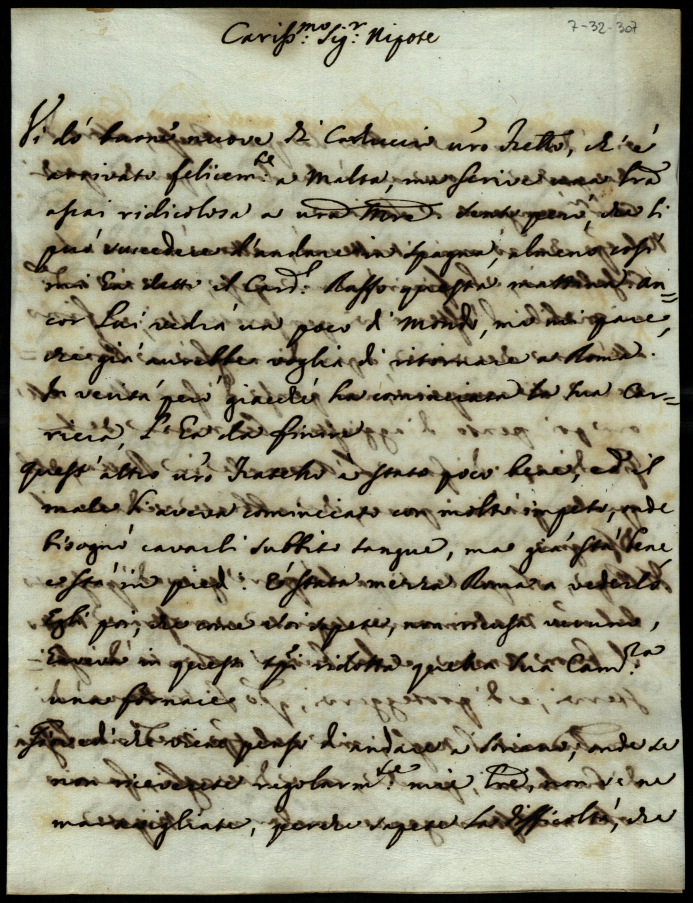 7-32-307
Cariss.mo Sig.r Nipote
Vi dò buone nuove di Carluccio vro Fratello, ch'è
arrivato felicem.te a Malta, ma scrive una lra
assai ridicolosa a vra Mre. però, che li
può succedere l'andare in Spagna, almeno così
mi ha detto il Card.l Basso questa mattina. An=
cor Lui vedrà un poco di Mondo, ma mi pare,
che già avrebbe voglia di ritornare a Roma.
In verità però giacchè ha cominciata la sua Car=
riera, l'ha da finire
Quest'altro vro Fratello è stato poco bene, ed il
male li aveva cominciato con molto impeto, onde
bisognò cavarli subbito sangue, ma già stà bene
e stà in piedi. È stata mezza Roma a vederlo
Egli poi, che come sapete, non ricusa veruno,
in questi ridotta quella sua Cam.ra
una fornace
che viene penso di andare a Soriano, onde se
non riceverete regolarm.te mie lre, non ve ne
maravigliate, perche sapete la difficoltà, che